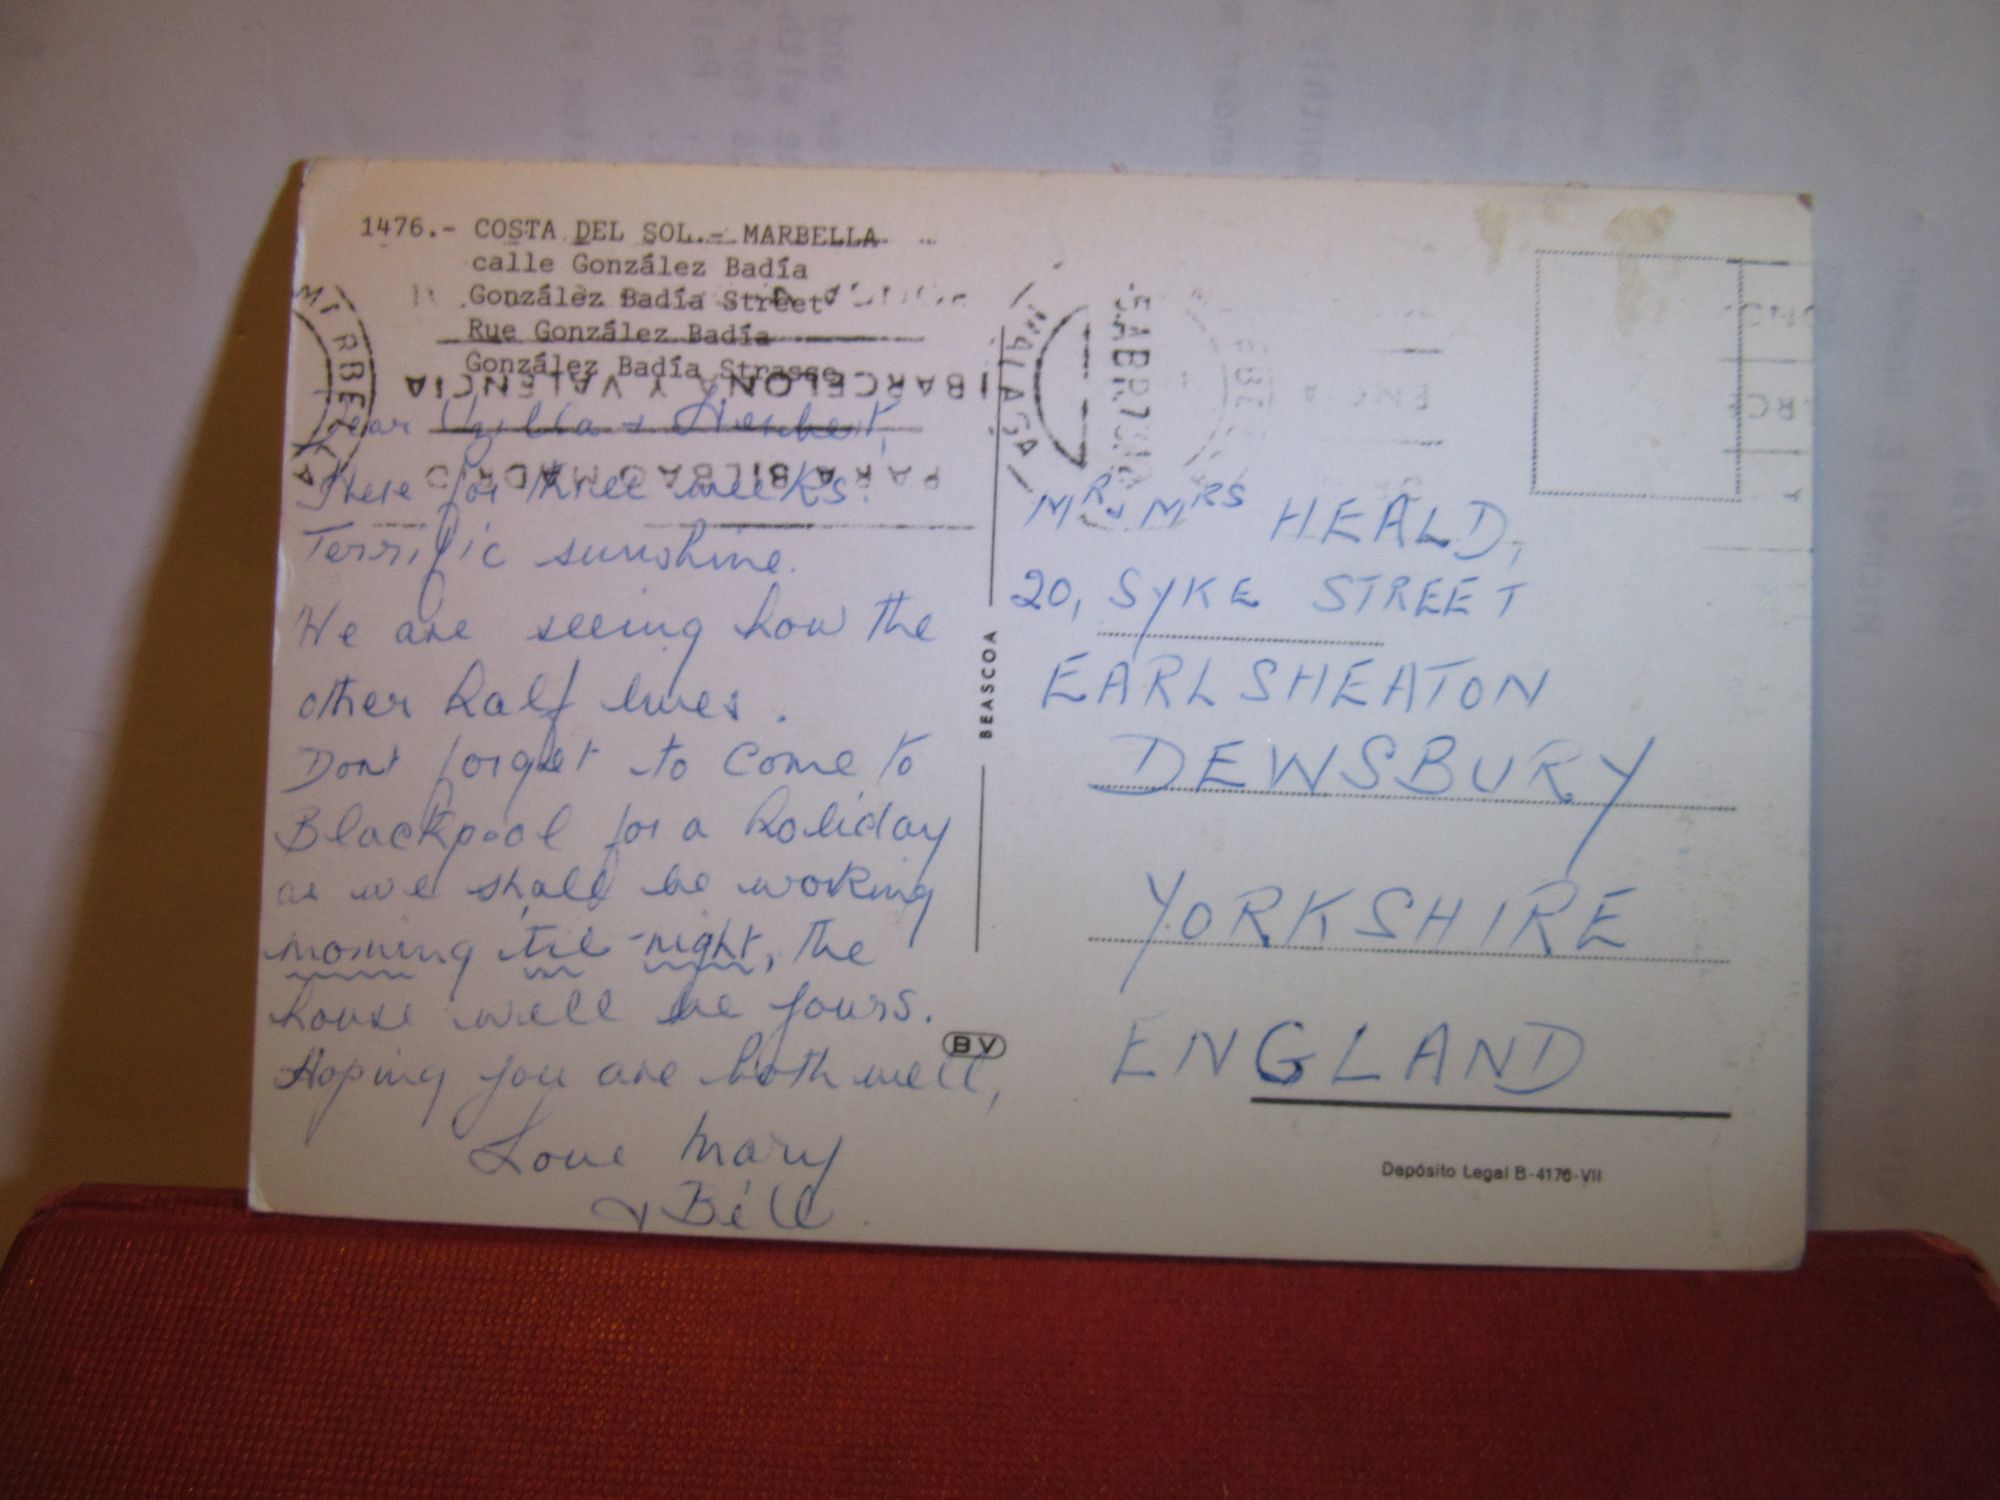 1476.- COSTA DEL SOL.- MARBELLA
calle González Badía
González Badía Street
Rue González Badía
González Badía Strasse
BARCELONA Y VALENCIA
PARA BILBAO MADRID
MALAGA
5 ABR 73
Dear & Herbert,
Here for three weeks.
Terrific sunshine.
We are seeing how the
other half lives.
Dont forget to come to
Blackpool for a holiday
as we shall be working
morning til night, the
house will be yours.
Hoping you are both well,
Love Mary
& Bill.
BEASCOA
BV
MR & MRS HEALD,
20, SYKE STREET
EARLSHEATON
DEWSBURY
YORKSHIRE
ENGLAND
Depósito Legal B-4176-VII